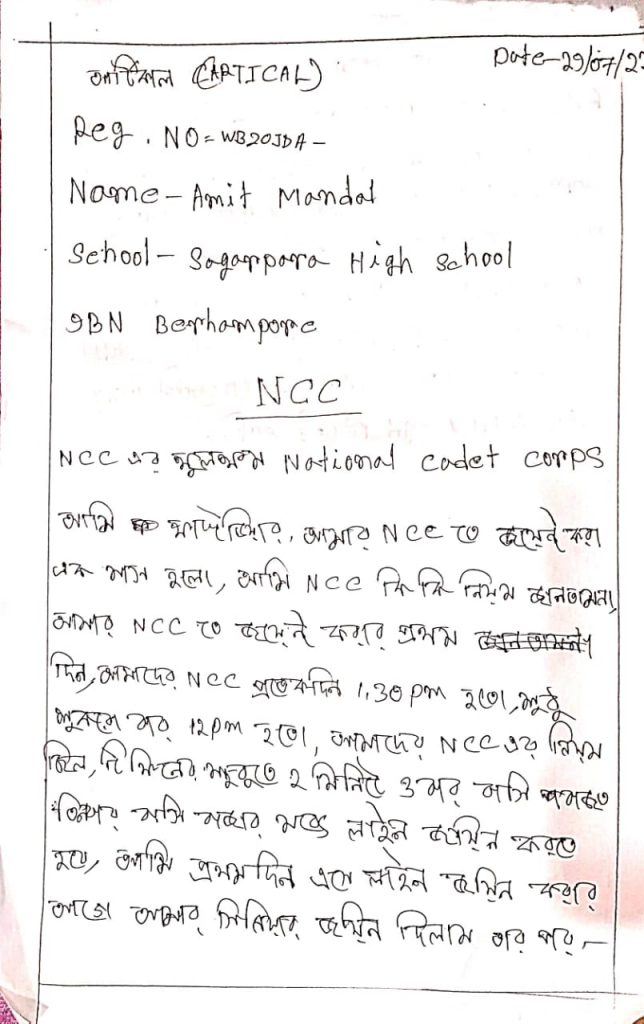 আর্টিকাল (ARTICAL) Date-29/07/2
Reg. NO= WB20JDA-
Name - Amit Mandal
School - Sagarpara High School
9BN Berhampore
NCC
NCC এর National cadet corps
আমি আমার NCC তে জয়েন করা
এক মাস হলো, আমি NCC কি কি নিয়ম জানতামনা,
আমার NCC তে জয়েন করার প্রথম
দিন, আমাদের NCC প্রত্যেকদিন 1.30 pm হতো,
12pm হতো, আমাদের NCC এর নিয়ম
ছিল, ২ মিনিট
মধ্যে লাইন জয়িন করতে
হবে, আমি প্রথম দিন এসে লাইন জয়িন করার
আগে আমার সিনিয়র জয়িন দিলাম তার পর -